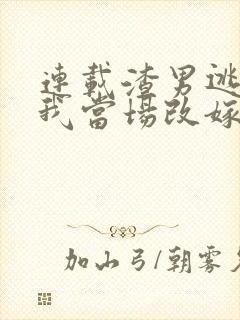 連載渣男逃
我當場改嫁
加山弓/朝雾